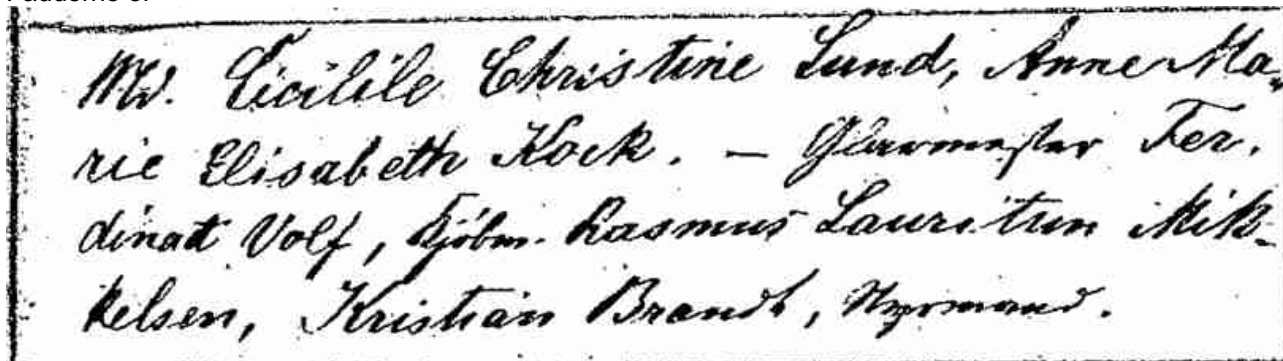 Md. Cicilile Christine Lund, Anne Ma-
rie Elisabeth Kock. — Glarmester Fer-
dinat Volf, Kjöbm. Rasmus Lauritsen Mik-
kelsen, Kristian Brandt, Styrmand.